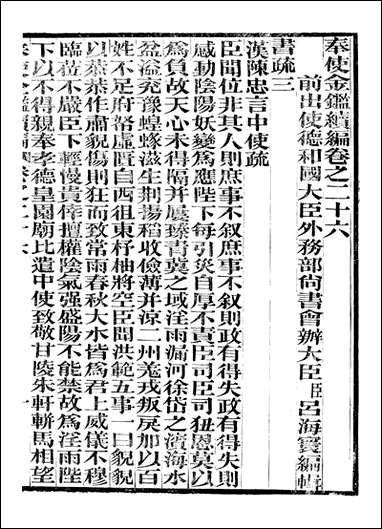 奉使金鑑續編卷之二十六
前出使德和國大臣外務部尚書會辦大臣臣呂海寰編輯
書疏三
漢陳忠言中使疏
臣聞位非其人則庶事不敘庶事不敘則政有得失政有得失則
感動陰陽妖變爲應陛下每引災自厚不責臣司臣司狃恩莫以
爲負故天心未得隔并屢臻青冀之域淫雨漏河徐岱之濱海水
盆溢兗豫蝗蝝滋生荆揚稻收儉薄并涼二州羌戎叛戾加以百
姓不足府帑虛匱自西徂東杼柚將空臣聞洪範五事一曰貌貌
以恭恭作肅貌傷則狂而致常雨春秋大水皆爲君上威儀不穆
臨莅不嚴臣下輕慢貴倖擅權陰氣强盛陽不能禁故爲淫雨陛
下以不得親奉孝德皇園廟比遣中使致敬甘陵朱軒軿馬相望